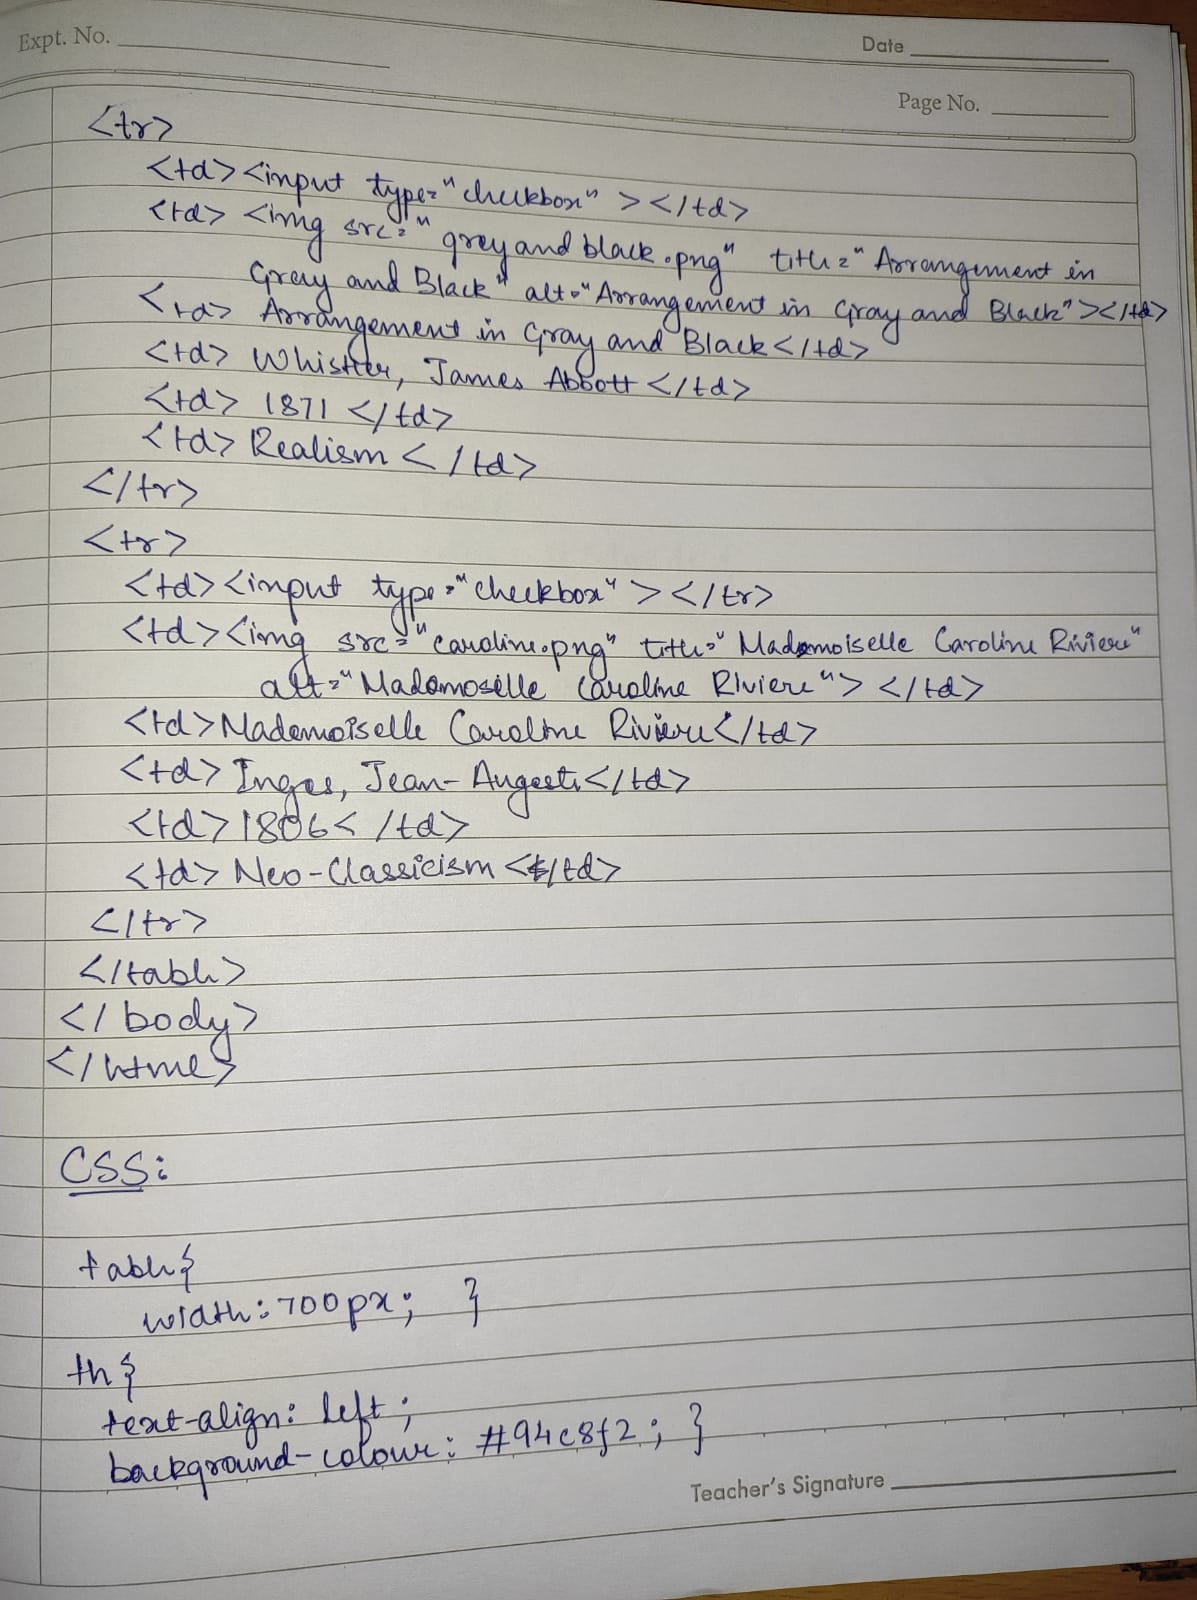 Expt. No.
Date
Page No.
<tr>
<td><input type="checkbox"></td>
<td> <img src="greyandblack.png" title="Arrangement in
Gray and Black" alt="Arrangement in Gray and Black"></td>
<td> Arrangement in Gray and Black</td>
<td> Whistler, James Abbott </td>
<td> 1871 </td>
<td> Realism </td>
</tr>
<tr>
<td><input type="checkbox"> </tr>
<td><img src="caroline.png" title="Mademoiselle Caroline Riviere"
alt="Mademoselle Caroline Riviere"> </td>
<td>Mademoiselle Caroline Riviere</td>
<td> Inges, Jean-Augeste</td>
<td>1806</td>
<td> Neo-Classicism </td>
</tr>
</table>
</body>
</html>
CSS:
table{
width:700px; }
th{
text-align: left;
background-colour: #94c8f2; }
Teacher's Signature